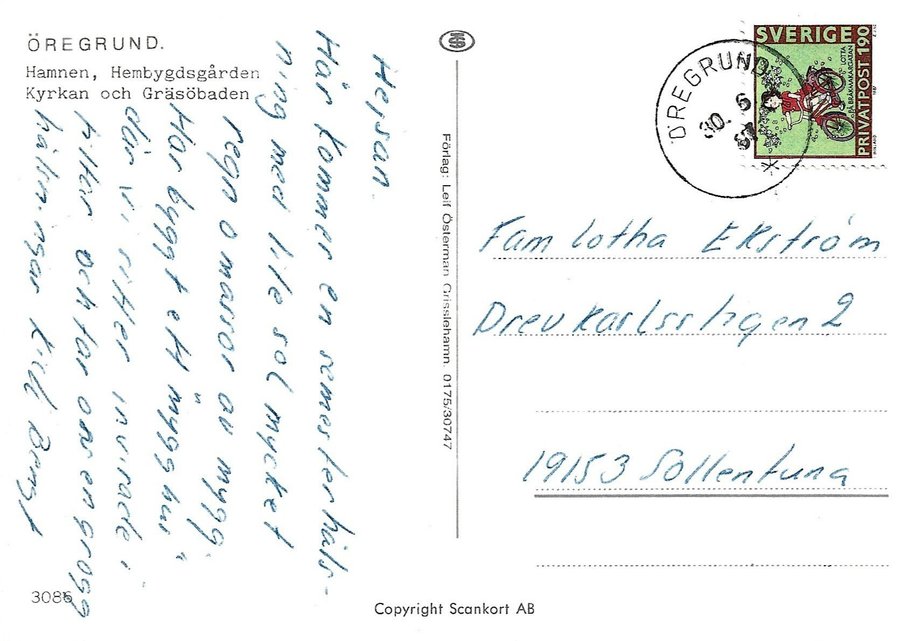 ÖREGRUND.
Hamnen, Hembygdsgården
Kyrkan och Gräsöbaden
Hejsan.
Här kommer en semesterhäls-
ning med lite sol mycket
regn o massor av mygg.
Har byggt ett "mygghus"
där vi sitter invirade i
filtar och tar oss en grogg
hälsningar Kjell Bengt
3086
Förlag: Leif Österman Grisslehamn. 0175/30747
Copyright Scankort AB
SVERIGE
PRIVATPOST 1.90
LOTTA
PÅ BRÅKMAKARGATAN
ÖREGRUND
30. 6
87
Fam Lotha Ekström
Drev Karlss
19153 Sollentuna